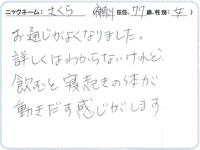 ニックネーム：さくら 在住、77歳、性別：女）
お通じがよくなりました。
詳しくはわからないけれど、
飲むと寝起きの体が
動きだす感じがします